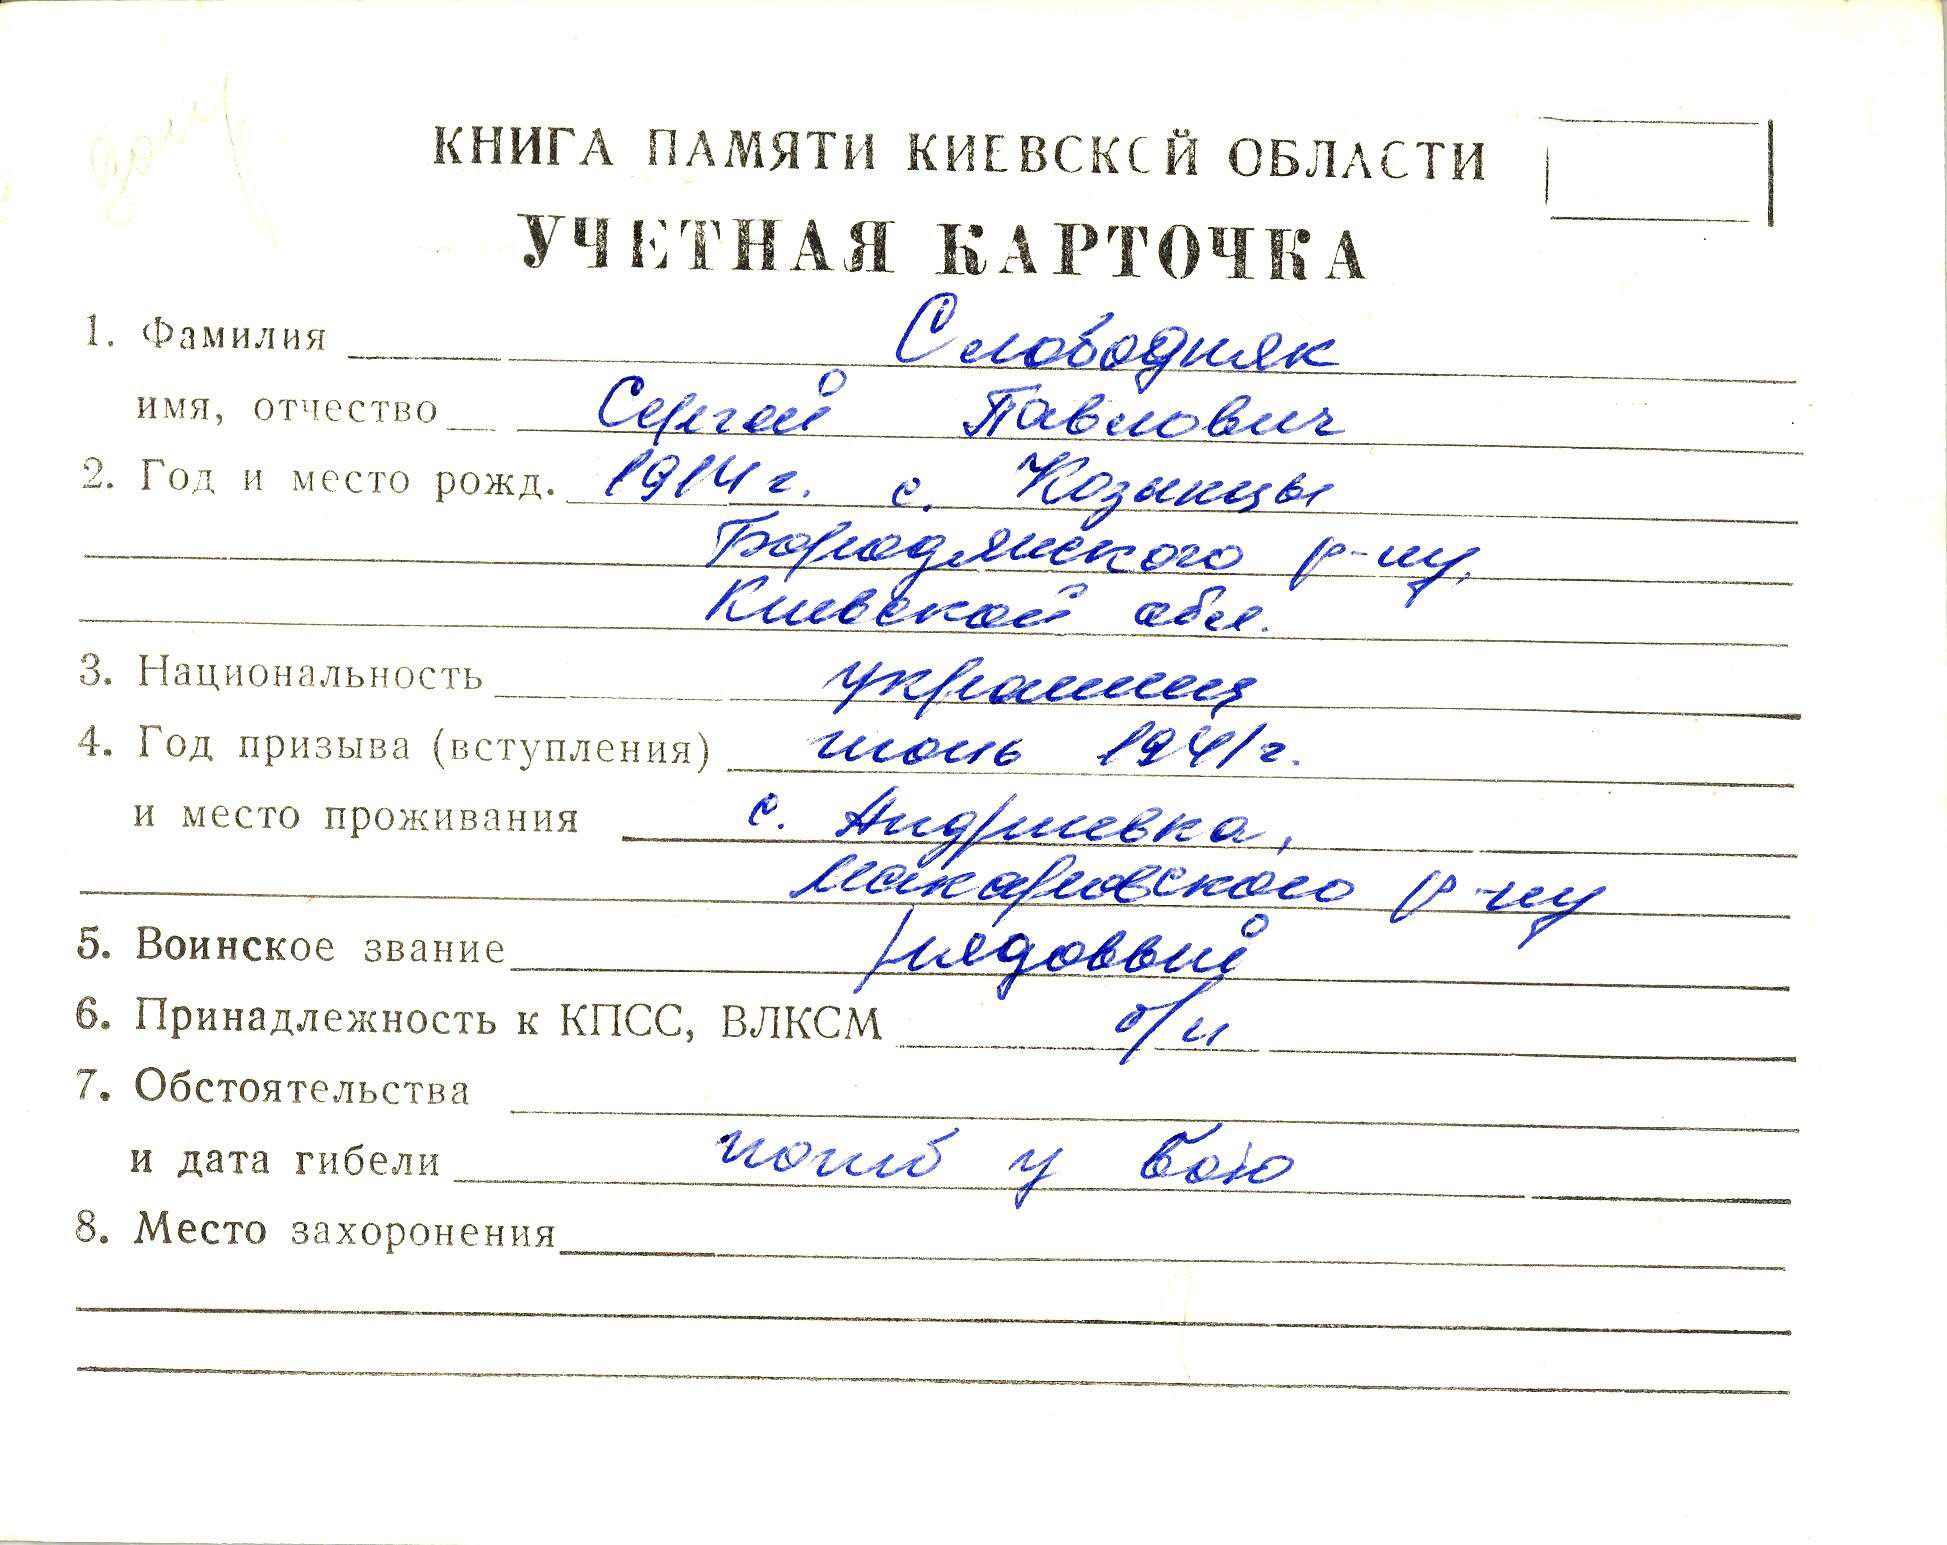 КНИГА ПАМЯТИ КИЕВСКОЙ ОБЛАСТИ
УЧЕТНАЯ КАРТОЧКА
1. Фамилия Слободняк
имя, отчество Сергей Павлович
2. Год и место рожд. 1914 г. с. Козынцы
Бородянского р-ну,
Киевской обл.
3. Национальность украинец
4. Год призыва (вступления) июнь 1941 г.
и место проживания с. Андриевка,
Макаровского р-ну
5. Воинское звание рядовый
6. Принадлежность к КПСС, ВЛКСМ б/п
7. Обстоятельства
и дата гибели погиб у бою
8. Место захоронения